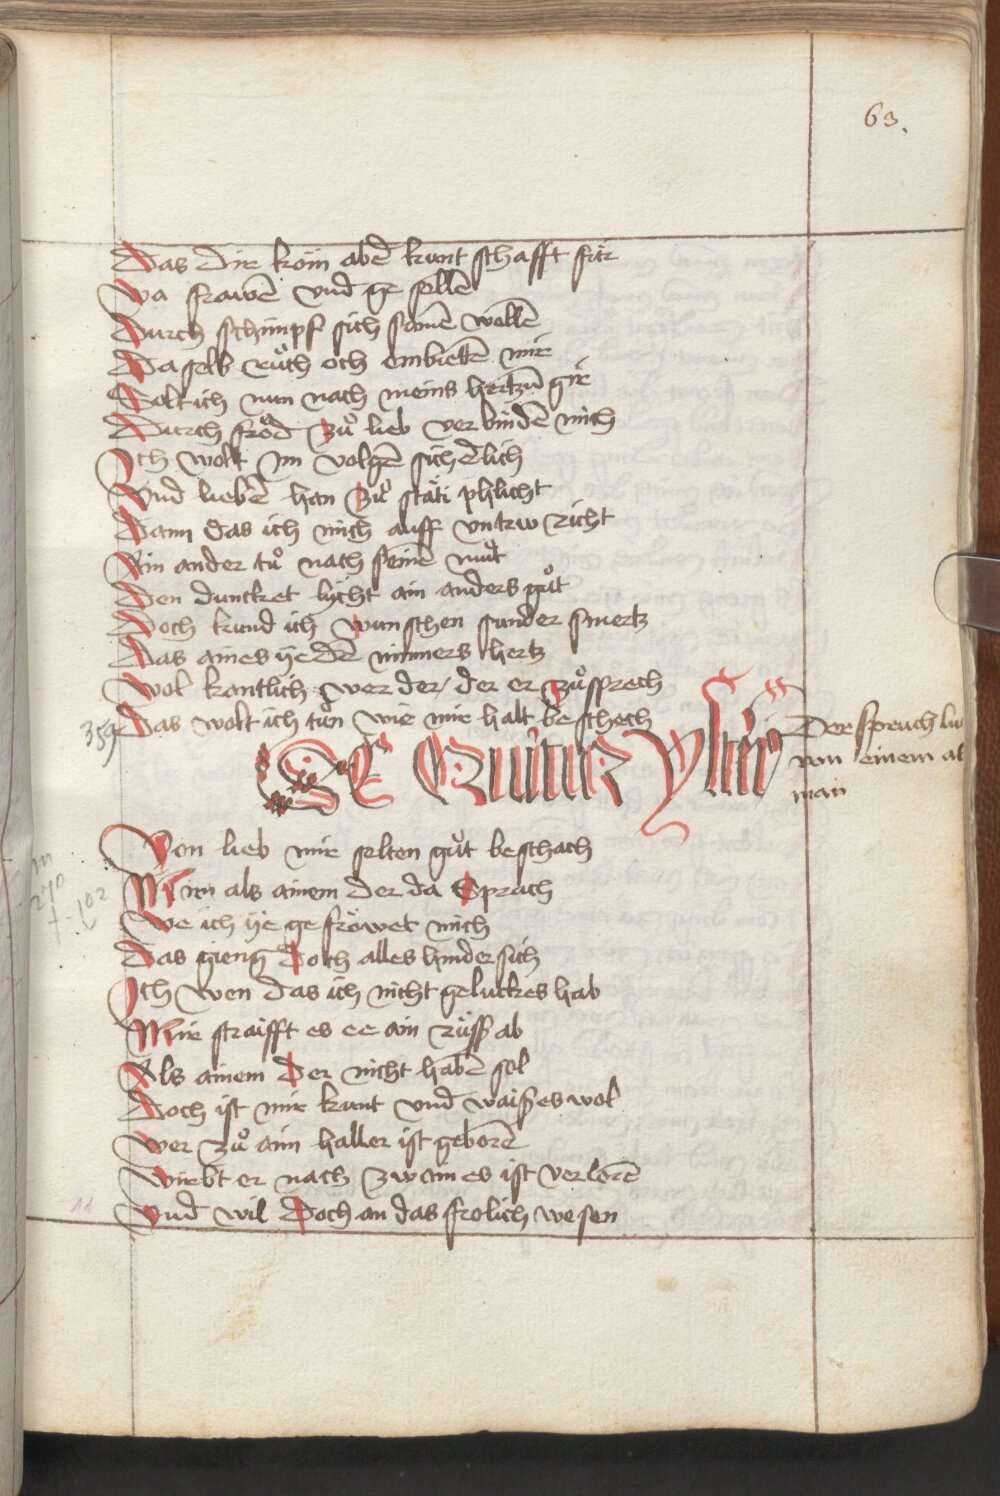 63.
Das dir kóm abē kunt schafft für
Wa frawē vnd ge sellē
Durch schimpf sich samē wóllē
Da selb růch och embiettē mir
Solt ich nun nach meins hertzn̄ gir
Durch fród zů lieb verbindē mich
Ich wolt im volgē sichelich
Vnd liebē han zů stäti phlicht
Dann das ich mich auff vntrw richt
Ain ander tů nach seinē můt
Den duncket lycht ain anders gůt
Doch kund ich wunschen sunder smertz
Das aines yedē mimmers hertz
Wol kantlich wer der / der er zůsprech
Das wolt ich tůn wie mir halt beschech
359
Der spruch lu
von einem al
man
Von lieb mir selten gůt beschach
Mim als ainem der da Sprach
We ich ye ge fröwet mich
Das gieng Doch alles hinder sich
Ich wen das ich nicht geluckes hab
Mir straifft es ee ain růss ab
Als ainem Der nicht habē sol
Doch ist mir kunt vnd waiß es wol
Wer zů aim haller ist geborē
Wirbt er nach zwain es ist verlorē
Vnd wil Doch an das frolich wesen
11